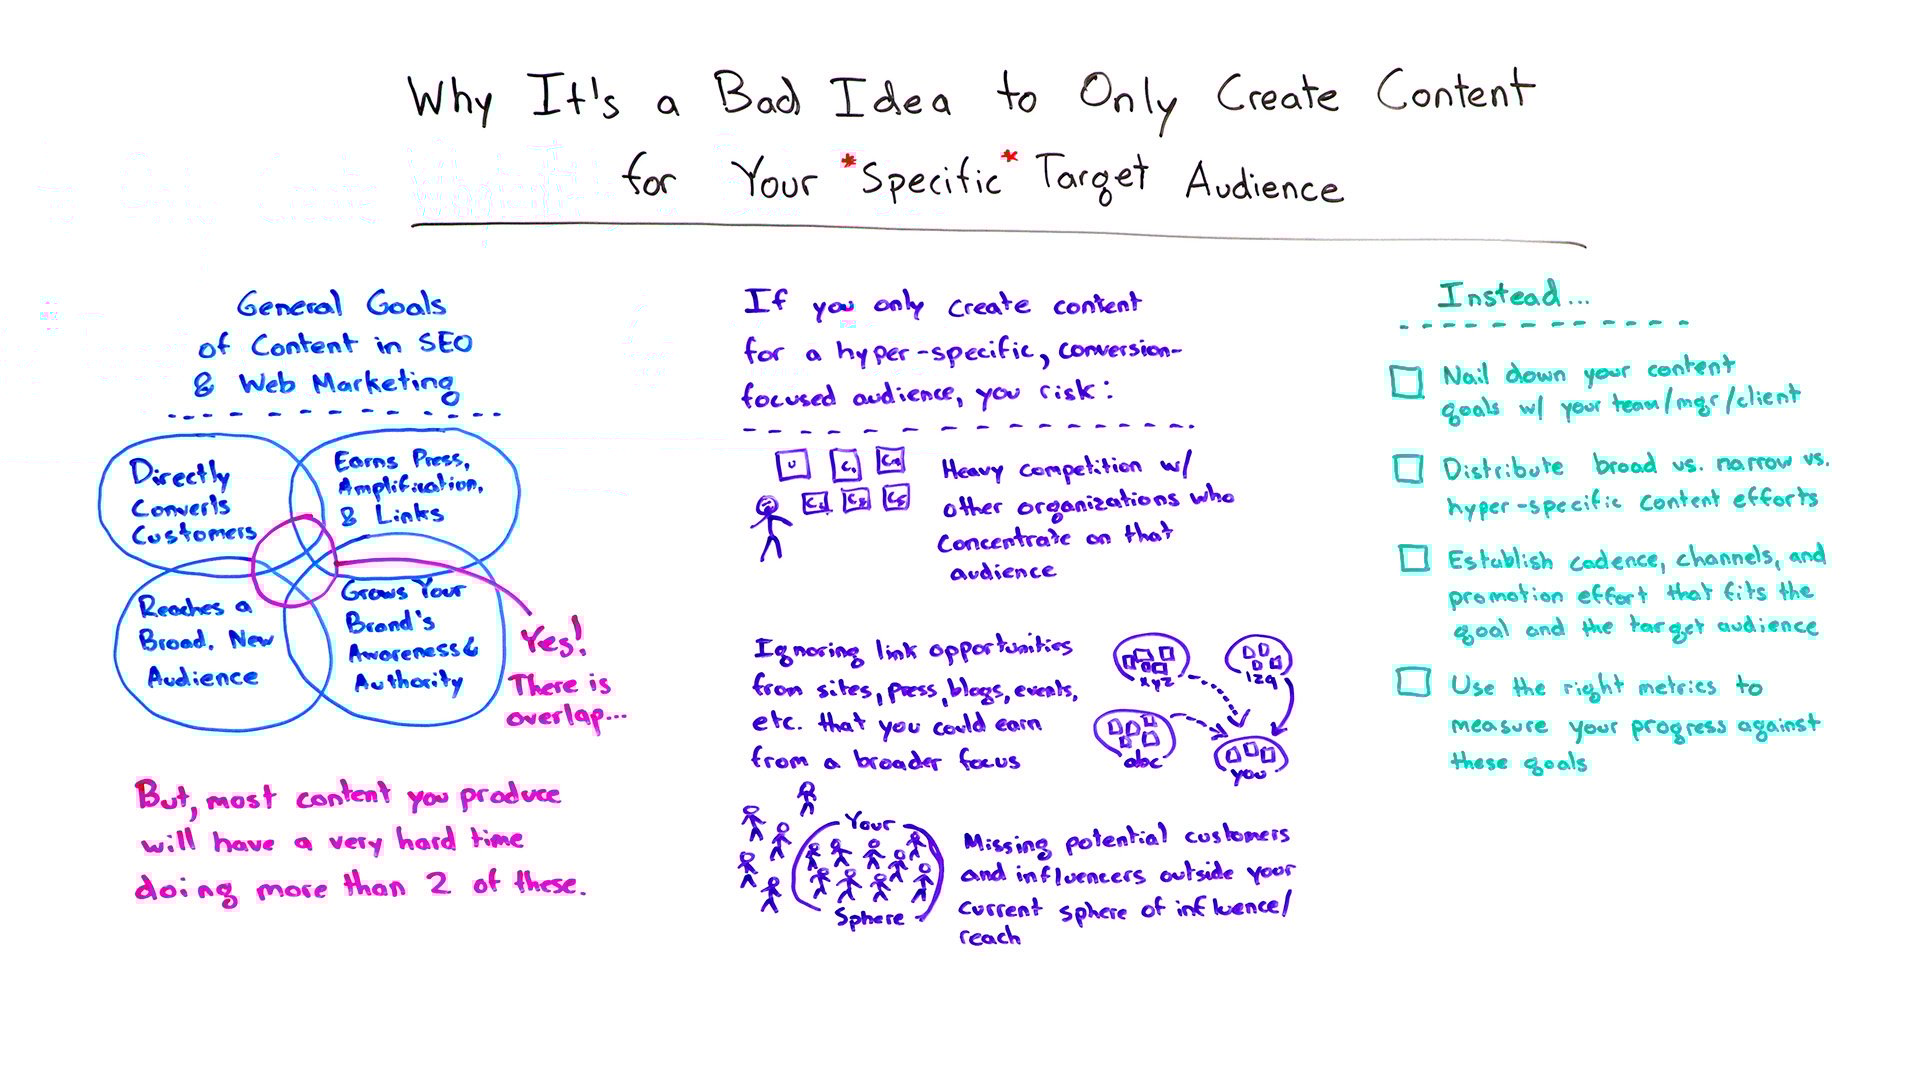 Why It's a Bad Idea to Only Create Content
for Your *Specific* Target Audience
General Goals
of Content in SEO
& Web Marketing
Directly
Converts
Customers
Earns Press,
Amplification,
& Links
Reaches a
Broad, New
Audience
Grows Your
Brand's
Awareness &
Authority
Yes!
There is
overlap...
But, most content you produce
will have a very hard time
doing more than 2 of these.
If you only create content
for a hyper-specific, conversion-
focused audience, you risk:
U
Heavy competition w/
other organizations who
concentrate on that
audience
Ignoring link opportunities
from sites, press, blogs, events,
etc. that you could earn
from a broader focus
xyz
129
abc
you
Your
Sphere
Missing potential customers
and influencers outside your
current sphere of influence/
reach
Instead...
Nail down your content
goals w/ your team/mgr/client
Distribute broad vs. narrow vs.
hyper-specific content efforts
Establish cadence, channels, and
promotion effort that fits the
goal and the target audience
Use the right metrics to
measure your progress against
these goals